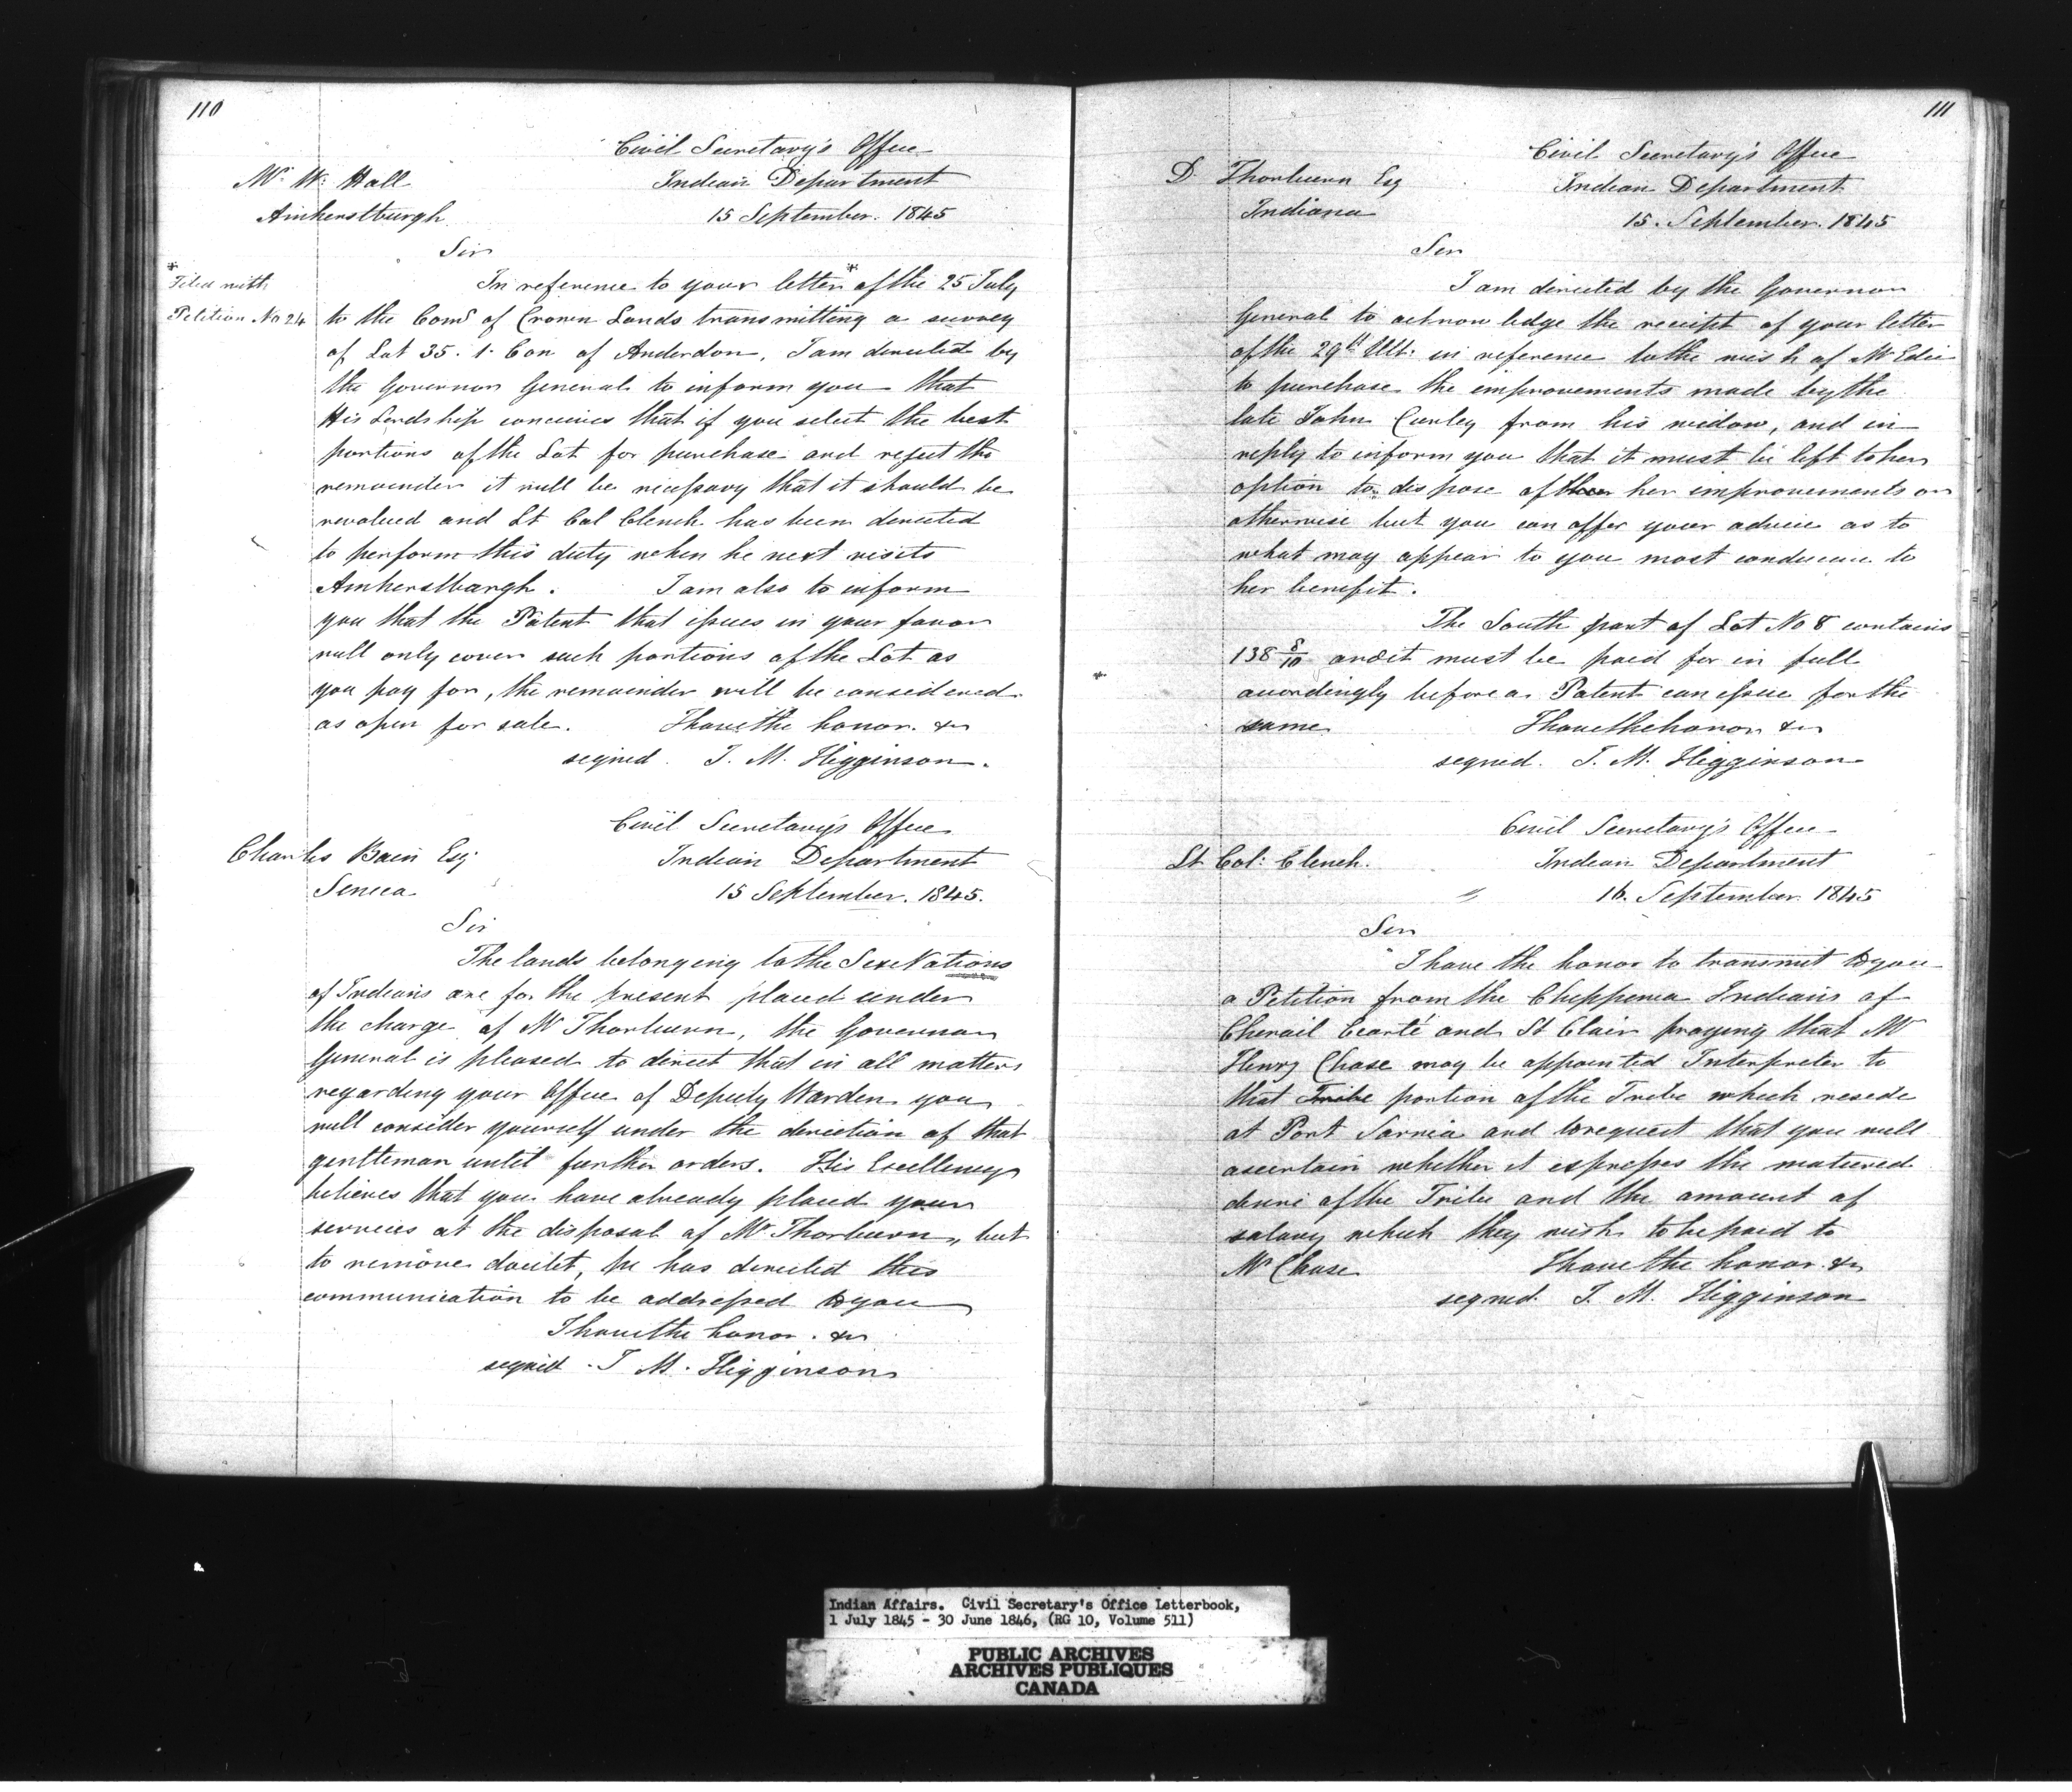 110
Civil Secretary's Office
Mr W. Hall Indian Department
Amherstburgh 15 September. 1845
Sir
* Filed with
Petition No 24
In reference to your letter* of the 25 July
to the Comr of Crown Lands transmitting a survey
of Lot 35. 1. Con of Anderdon, I am directed by
the Governor General to inform you that
His Lordship conceives that if you select the best
portions of the Lot for purchase and reject the
remainder it will be necessary that it should be
revalued and Lt Col Clench has been directed
to perform this duty when he next visits
Amherstburgh. I am also to inform
you that the Patent that issues in your favor
will only cover such portions of the Lot as
you pay for, the remainder will be considered
as open for sale. I have the honor. &c
signed. J. M. Higginson.
Civil Secretary's Office
Charles Bain Esq Indian Department
Seneca 15 September. 1845.
Sir
The lands belonging to the Six Nations
of Indians are for the present placed under
the charge of Mr Thorburn, the Governor
General is pleased to direct that in all matters
regarding your Office of Deputy Warden you
will consider yourself under the direction of that
gentleman until further orders. His Excellency
believes that you have already placed your
services at the disposal of Mr Thorburn, but
to remove doubt, he has directed this
communication to be addressed to you
I have the honor. &c
signed. J M. Higginson
111
Civil Secretary's Office
D. Thorburn Esq Indian Department
Indiana 15. September. 1845
Sir
I am directed by the Governor
General to acknowledge the receipt of your letter
of the 29th Ult: in reference to the wish of Mr Edie
to purchase the improvements made by the
late John Curley from his widow, and in
reply to inform you that it must be left to her
option to dispose of her improvements or
otherwise but you can offer your advice as to
what may appear to you most conducive to
her benefit.
The South part of Lot No 8 contains
138 8/10 and it must be paid for in full
accordingly before a Patent can issue for the
same I have the honor &c
signed. J. M. Higginson
Civil Secretary's Office
Lt Col: Clench. Indian Department
" 16. September 1845
Sir
I have the honor to transmit to you
a Petition from the Chippewa Indians of
Chenail Ecarté and St Clair praying that Mr
Henry Chase may be appointed Interpreter to
that Tribe portion of the Tribe which reside
at Port Sarnia and to request that you will
ascertain whether it expresses the matured
desire of the Tribe and the amount of
salary which they wish to be paid to
Mr Chase I have the honor. &c
signed. J. M. Higginson
Indian Affairs. Civil Secretary's Office Letterbook,
1 July 1845 - 30 June 1846, (RG 10, Volume 511)
PUBLIC ARCHIVES
ARCHIVES PUBLIQUES
CANADA